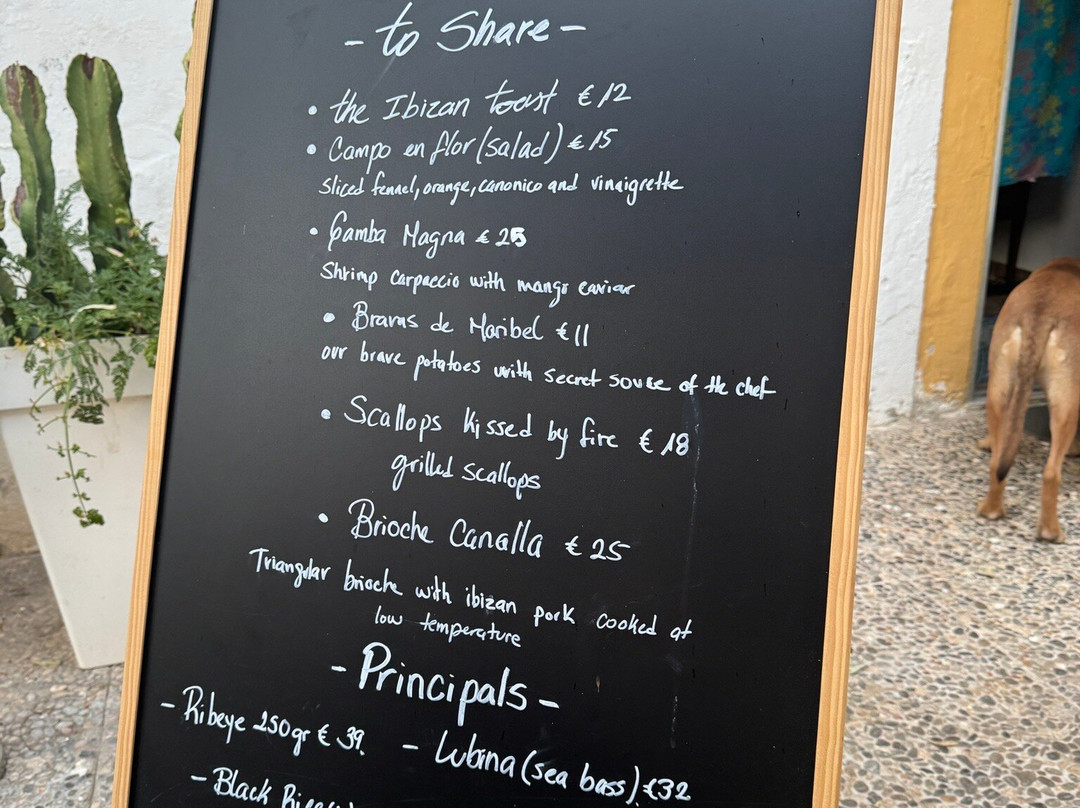 - to Share -
• the Ibizan toast €12
• Campo en flor (salad) €15
sliced fennel, orange, canonico and vinaigrette
• Gamba Magna € 25
Shrimp carpaccio with mango caviar
• Bravas de Maribel €11
our brave potatoes with secret souce of the chef
• Scallops kissed by fire € 18
grilled scallops
• Brioche Canalla € 25
Triangular brioche with ibizan pork cooked at
low temperature
- Principals -
- Ribeye 250gr € 39
- Lubina (sea bass) €32
- Black